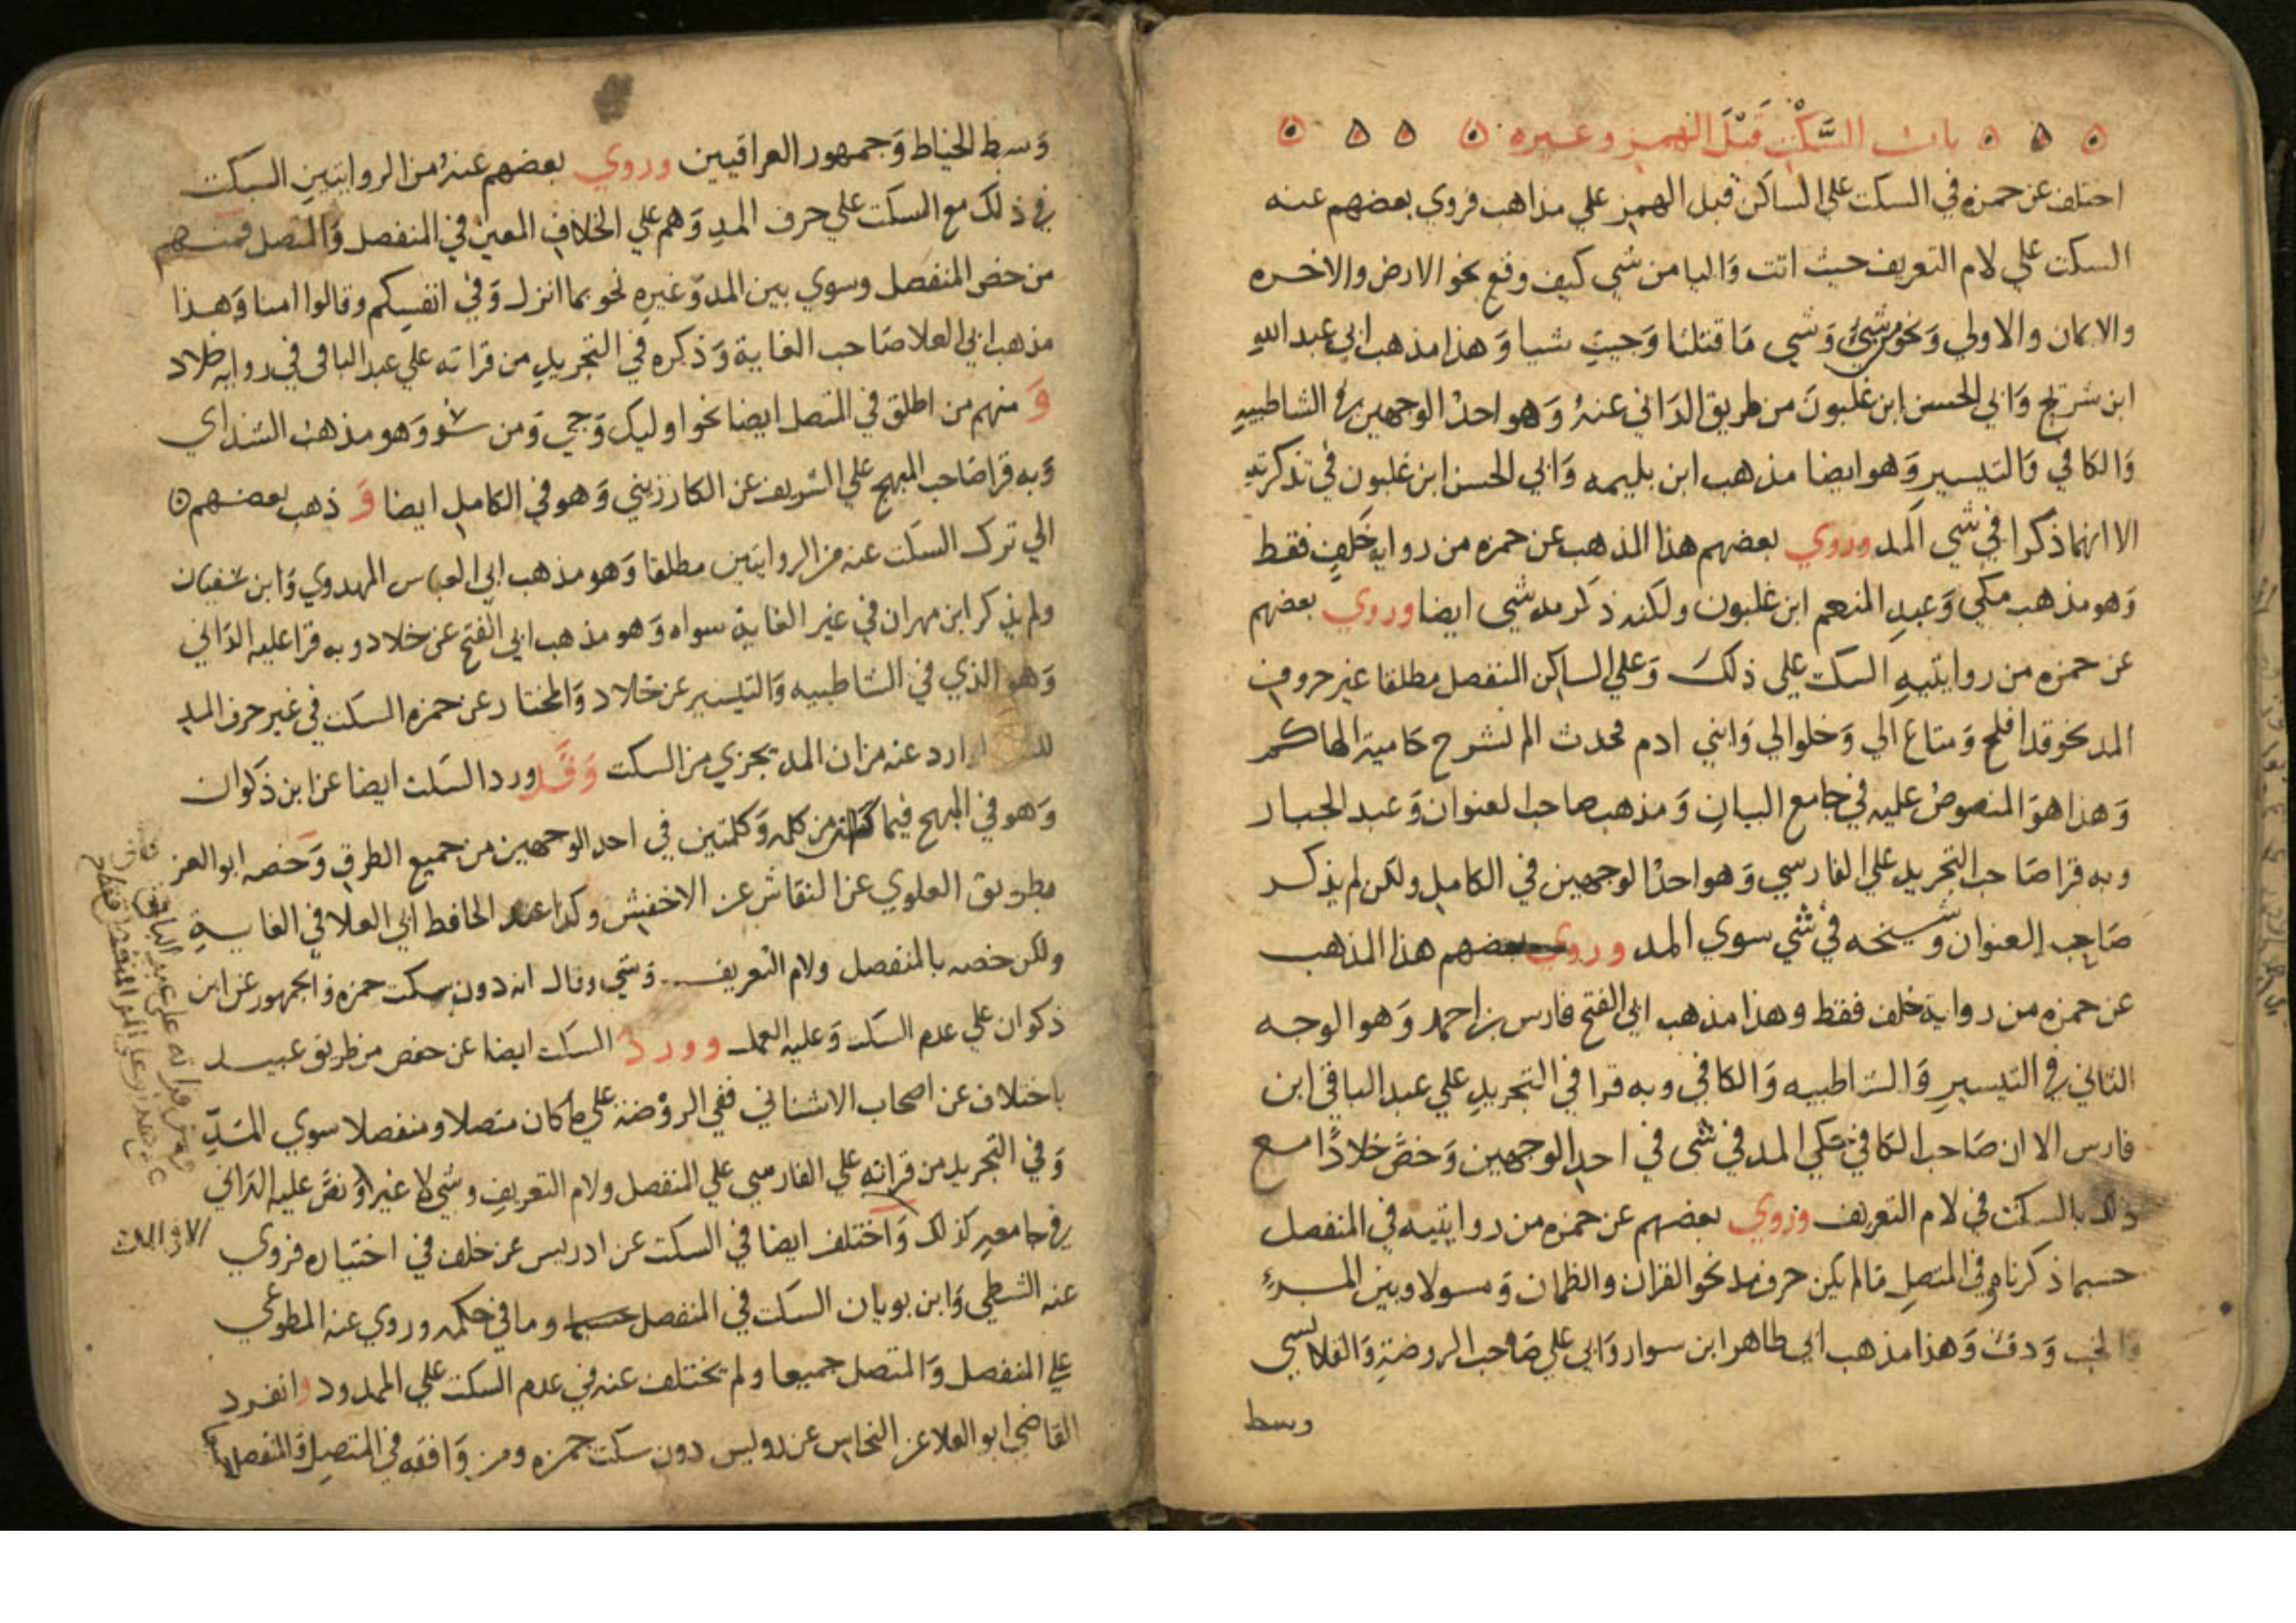 باب السَّكْتِ قَبْلَ الهمز وغيره
اختلف عن حمزه في السكت على الساكن قبل الهمز علي مذاهب فروي بعضهم عنه
السكت علي لام التعريف حيث اتت وَاليا من شي كيف وقع نحو الارض والاخره
والايمان والاولي وَنحو من شيء وَشي مَا قتلنا وَجيت شيا وَهذا مذهب ابي عبد الله
ابن شريح وَابي الحسن ابن غلبون من طريق الدَاني عنهُ وَهو احدُ الوجهين في الشاطبيه
وَالكافي وَالتيسير وَهو ايضا مذهب ابن بليمه وَابي الحسن ابن غلبون في تذكرته
الا انهما ذكرا في شي المد وروي بعضهم هذا المذهب عن حمزه من روايه خَلفٍ فقط
وَهو مذهب مكي وَعبدِ المنعم ابن غلبون ولكنه ذكر مد شي ايضا وروي بعضهم
عن حمزه من روايتيهِ السكت علي ذلكَ وَعلي الساكن المنفصل مطلقا غير حروف
المد نحو قد افلح وَمتاع الي وَخلوا الي وَابني ادم فحدث الم نشرح حَامية الهاكم
وَهذا هوَ المنصوصُ عليه في جامع البيان وَمذهب صاحب العنوان وَعبد الجبار
وبه قرا صَاحب التجريد علي الفارسي وَهو احدُ الوجهين في الكامل ولكن لم يذكر
صَاحِب العنوان وشيخه في شي سوي المد وروي بعضهم هذا المذهب
عن حمزه من رواية خلف فقط وهذا مذهب ابي الفتح فارس بن احمد وَهو الوجه
الثاني في التيسيرِ وَالشاطبيه وَالكافي وبه قرا في التجريدِ علي عبد الباقي ابن
فارس الا ان صَاحب الكافي حكي المد في شي في احد الوجهين وَخصَّ خلادًا مع
ذلك بالسكت في لام التعريف وروي بعضهم عن حمزه من روايتيه في المنفصل
حسبما ذكرناه وفي المتصل مالم يكن حرف مد نحو القران والظمان وَمسولا وبين المرءِ
والخب وَدفء وَهذا مذهب ابي طاهر ابن سوار وَابي علي صَاحب الروضة وَالقلانسي
وسط
وَسبط الخياط وَجمهور العراقيين وروي بعضهم عنهُ من الروايتين السكت
في ذلك مع السكت علي حرف المدِ وَهم علي الخلاف المعين في المنفصل وَالمتصل فمنهم
من خص المنفصل وسوي بين المد وَغيره نحو بما انزل وَفي انفسكم وقالوا امنا وَهذا
مذهب ابي العلا صَاحب الغاية وَذكره في التجريدِ من قراته علي عبد الباقي في روايه خلاد
وَ منهم من اطلق في المتصل ايضا نحو اوليك وَجي وَمن سو وَهو مذهب الشذاي
وَبه قرا صَاحب المبهج علي الشريف عن الكارزيني وَهو في الكامل ايضا وَ ذهب بعضهم
الي ترك السكت عنه من الروايتين مطلقا وَهو مذهب ابي العباس المهدوي وَابن سفيان
ولم يذكر ابن مهران في غير الغاية سواه وَهو مذهب ابي الفتح عن خلاد وبه قرا عليه الدَاني
وَهو الذي في الشاطبيه وَالتيسير عن خلاد وَالمختار عن حمزه السكت في غير حرف المد
ارد عنه من ان المد يجزي من السكت وَقَد ورد السكت ايضا عن ابن ذَكوان
وَهو في المبهج فيما كان من كلمه وَكلمتين في احد الوجهين من جميع الطرق وَخصه ابو العز
بطريق العلوي عن النقاش عن الاخفش وكذا عند الحافظ ابي العلا في الغاية
ولكن خصه بالمنفصل ولام التعريف وَشي وقال انه دون سكت حمزه وَالجمهور عن ابن
ذكوان علي عدم السكت وَعليه العمل وورد السكت ايضا عن حفص من طريق عبيد
باختلاف عن اصحاب الاشناني ففي الروْضة علي ما كان متصلا ومنفصلا سوي المَدِّ
وَفي التجريد من قراته علي الفارسي علي المنفصل ولام التعريف وشي لا غير وَنصَّ عليه الدَاني
في جامعه كذلك وَاختلف ايضا في السكت عن ادريس عن خلف في اختياره فروي
عنه الشطي وَابن بويان السكت في المنفصل وما في حكمه وروي عنه المطوعي
علي المنفصل وَالمتصل جميعا ولم تختلف عنه في عدم السكت علي الممدود وانفرد
القاضي ابو العلا عن النحاس عن رويس دون سكت حمزه ومن وَافقه في المتصل وَالمنفصل